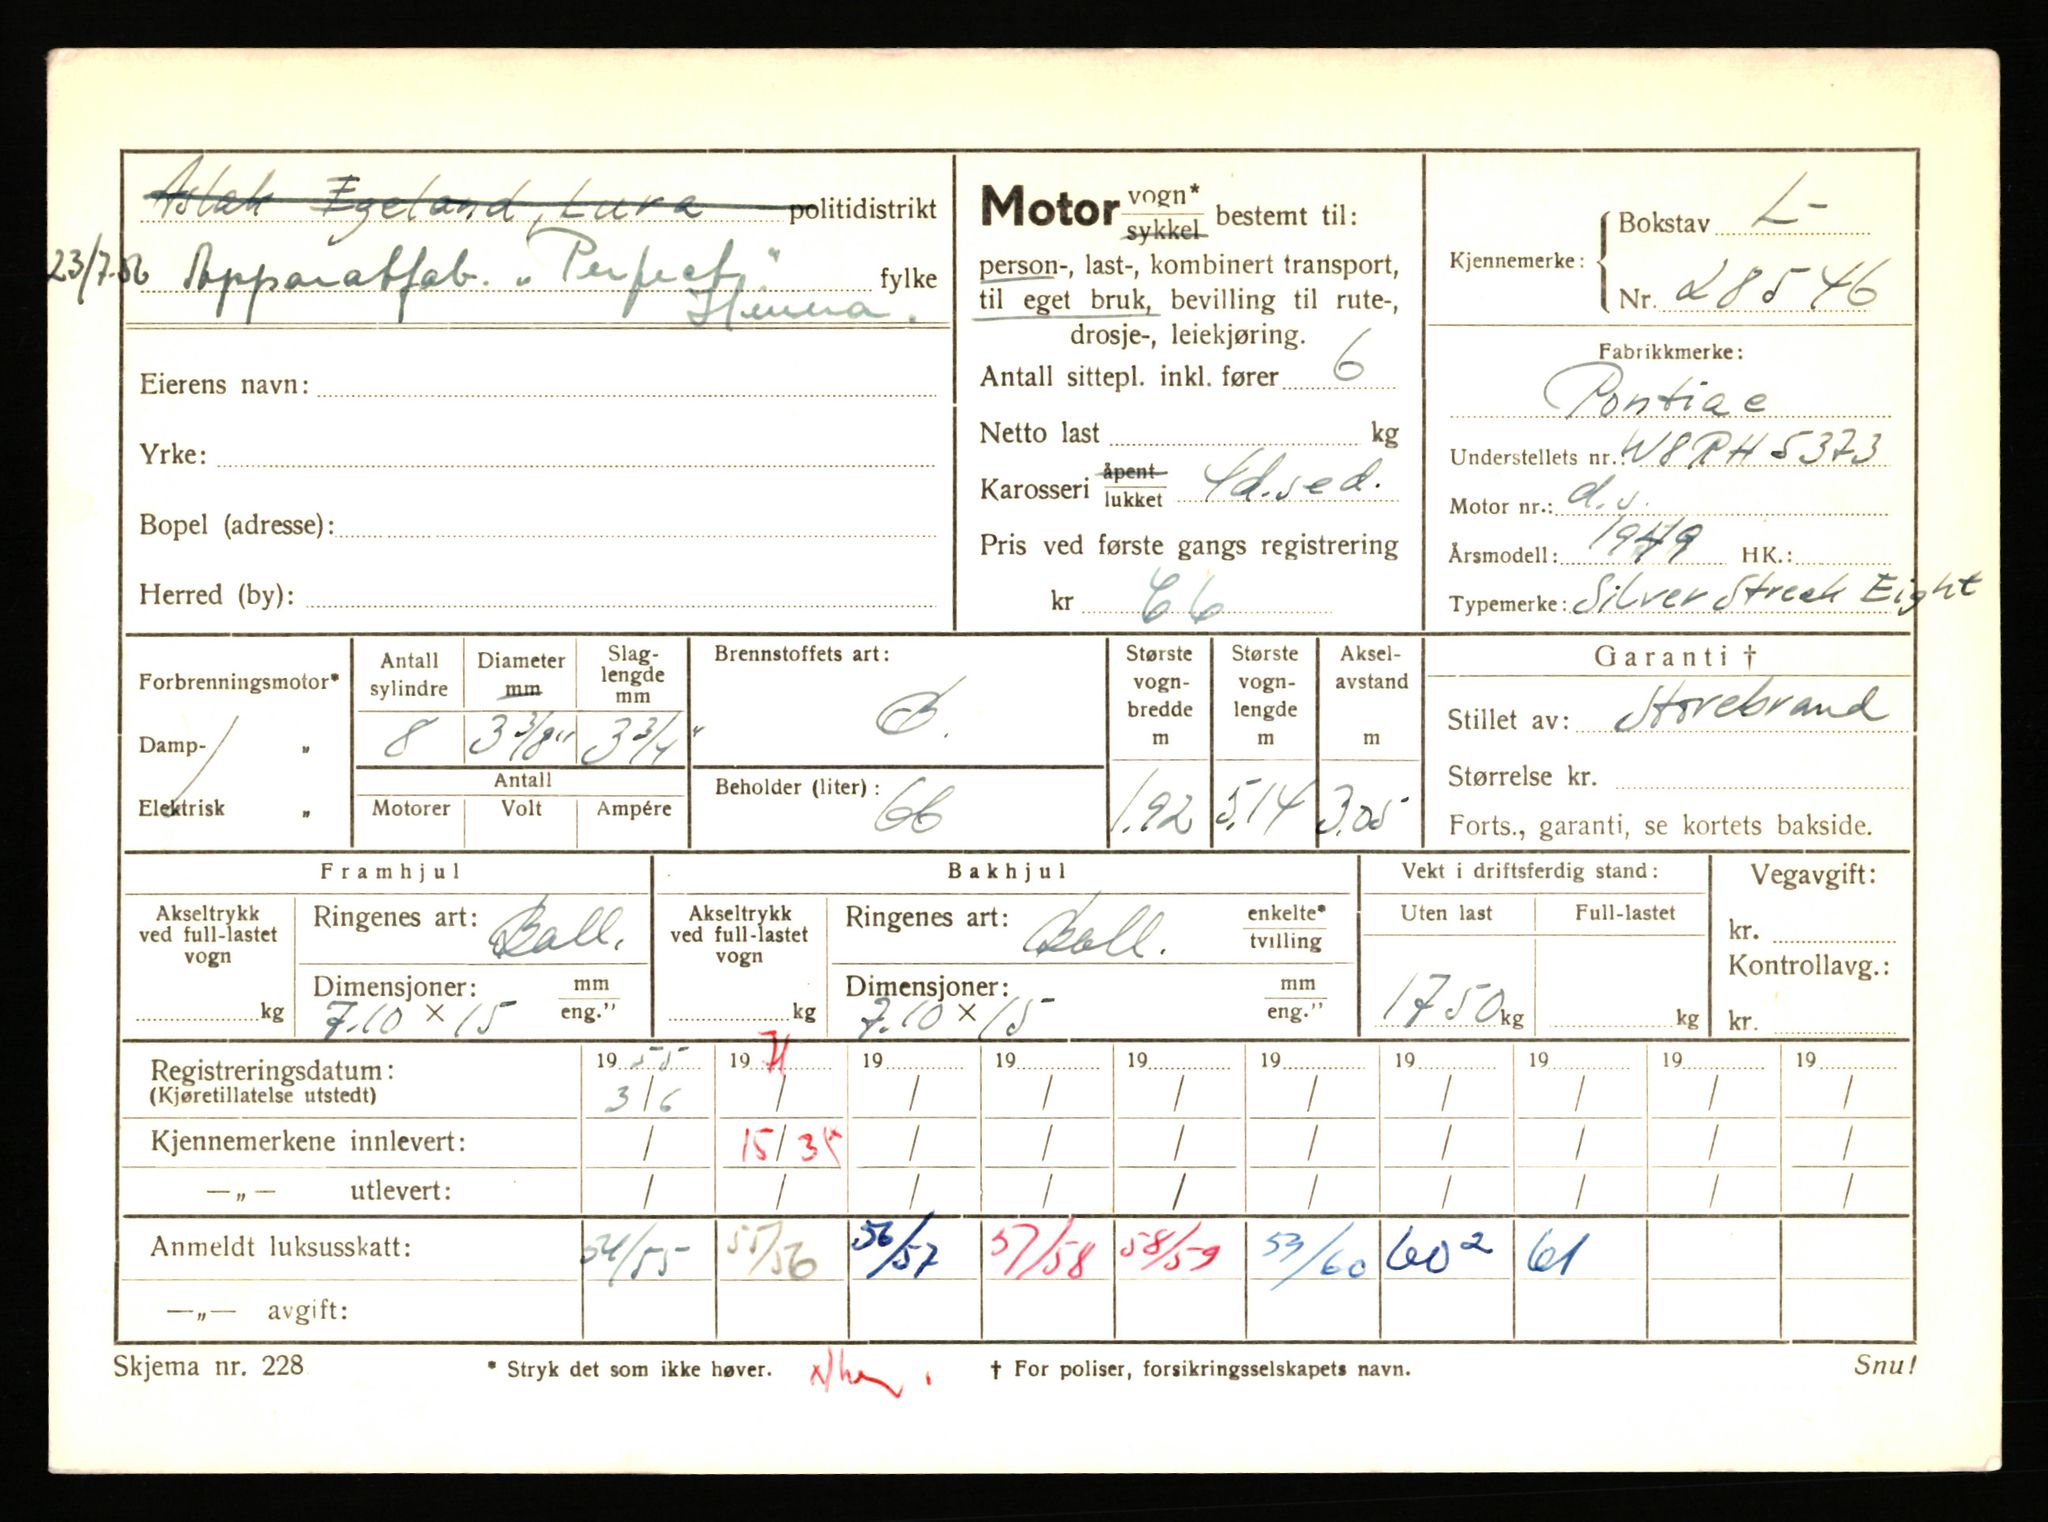 Aslak Egeland, Lura politidistrikt
23/7.56 Apparatfab. „Perfect" fylke
Hinna.
Eierens navn:
Yrke:
Bopel (adresse):
Herred (by):
Motor vogn* sykkel bestemt til:
person-, last-, kombinert transport,
til eget bruk, bevilling til rute-,
drosje-, leiekjøring.
Antall sittepl. inkl. fører 6
Netto last kg
Karosseri åpent lukket 4d.sed.
Pris ved første gangs registrering
kr
Kjennemerke: Bokstav L-
Nr. 28546
Fabrikkmerke:
Pontiac
Understellets nr.: W8RH5373
Motor nr.: d.s.
Årsmodell: 1949 HK.:
Typemerke: Silver Streak Eight
Forbrenningsmotor*
Damp- „
Elektrisk „
Antall sylindre 8
Diameter mm 3 3/8"
Slag-lengde mm 3 3/4"
Antall
Motorer Volt Ampére
Brennstoffets art: B.
Beholder (liter): 66
Største vogn-bredde m 1.92
Største vogn-lengde m 5.14
Aksel-avstand m 3.05
Garanti †
Stillet av: Storebrand
Størrelse kr.
Forts., garanti, se kortets bakside.
Framhjul
Akseltrykk ved full-lastet vogn kg
Ringenes art: Ball.
Dimensjoner: mm eng."
7.10 × 15
Bakhjul
Akseltrykk ved full-lastet vogn kg
Ringenes art: Ball. enkelte* tvilling
Dimensjoner: mm eng."
7.10 × 15
Vekt i driftsferdig stand:
Uten last Full-lastet
1750 kg kg
Vegavgift:
kr.
Kontrollavg.:
kr.
Registreringsdatum: 19 55 19 71 19 19 19 19 19 19 19 19
(Kjøretillatelse utstedt) 3/6 / / / / / / / / /
Kjennemerkene innlevert: / 15/3 / / / / / / / /
—„— utlevert: / / / / / / / / / /
Anmeldt luksusskatt: 54/55 55/56 56/57 57/58 58/59 59/60 60² 61
—„— avgift:
Skjema nr. 228 * Stryk det som ikke høver. † For poliser, forsikringsselskapets navn. Snu!